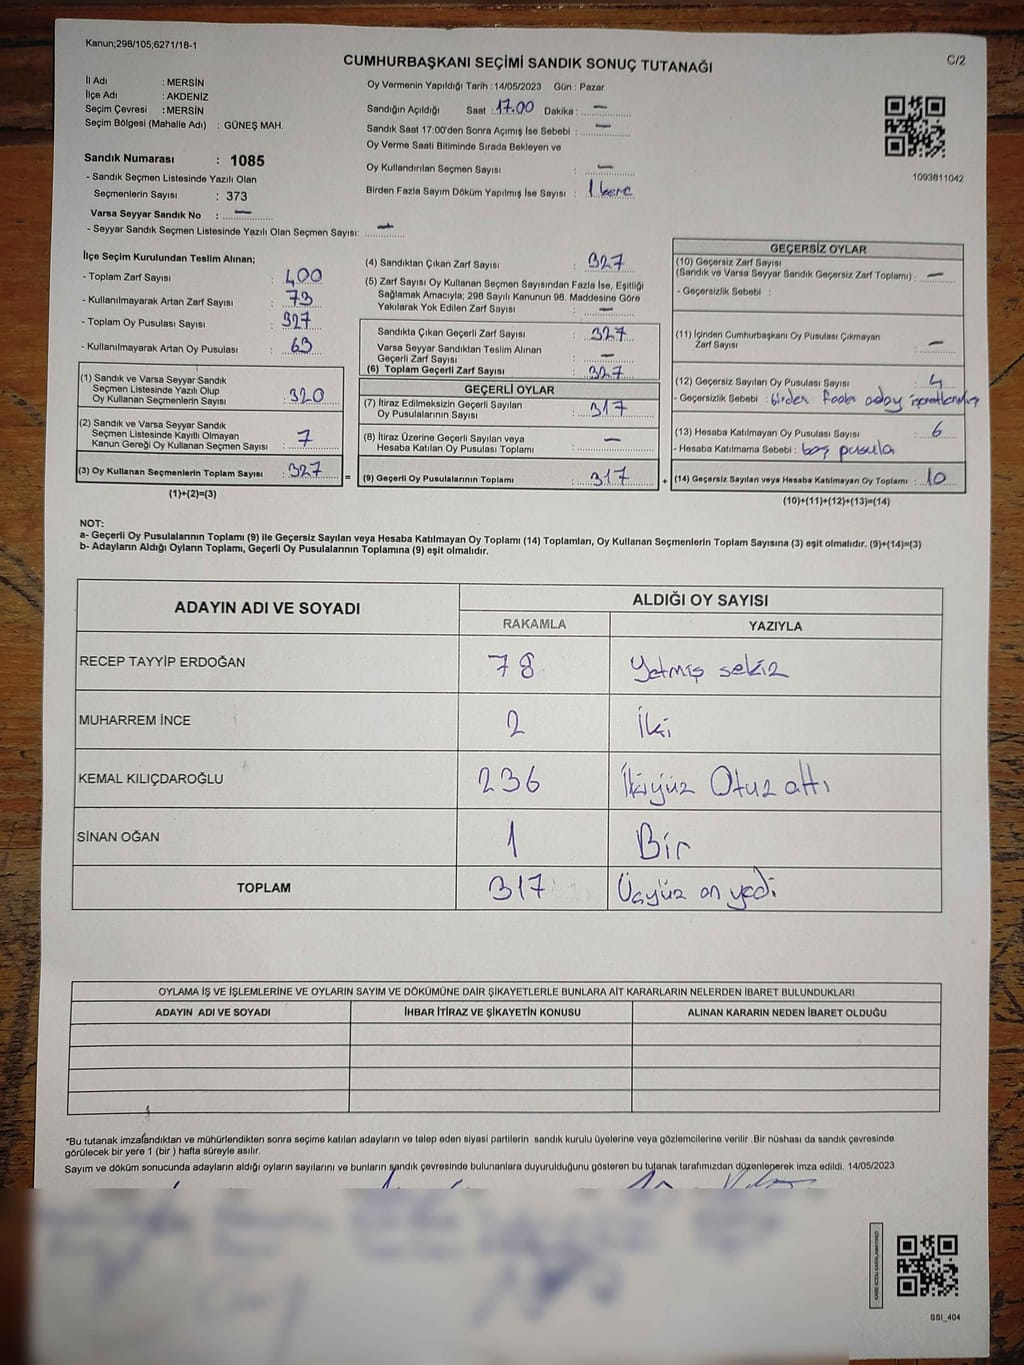 Kanun;298/105;6271/18-1
CUMHURBAŞKANI SEÇİMİ SANDIK SONUÇ TUTANAĞI
C/2
İl Adı : MERSİN
İlçe Adı : AKDENİZ
Seçim Çevresi : MERSİN
Seçim Bölgesi (Mahalle Adı) : GÜNEŞ MAH.
Sandık Numarası : 1085
- Sandık Seçmen Listesinde Yazılı Olan
Seçmenlerin Sayısı : 373
Varsa Seyyar Sandık No : —
- Seyyar Sandık Seçmen Listesinde Yazılı Olan Seçmen Sayısı: —
Oy Vermenin Yapıldığı Tarih : 14/05/2023 Gün : Pazar
Sandığın Açıldığı Saat : 17.00 Dakika : —
Sandık Saat 17:00'den Sonra Açımış İse Sebebi : —
Oy Verme Saati Bitiminde Sırada Bekleyen ve
Oy Kullandırılan Seçmen Sayısı : —
Birden Fazla Sayım Döküm Yapılmış İse Sayısı : 1 kere
1093811042
İlçe Seçim Kurulundan Teslim Alınan;
- Toplam Zarf Sayısı : 400
- Kullanılmayarak Artan Zarf Sayısı : 73
- Toplam Oy Pusulası Sayısı : 327
- Kullanılmayarak Artan Oy Pusulası : 63
(1) Sandık ve Varsa Seyyar Sandık
Seçmen Listesinde Yazılı Olup
Oy Kullanan Seçmenlerin Sayısı : 320
(2) Sandık ve Varsa Seyyar Sandık
Seçmen Listesinde Kayıtlı Olmayan
Kanun Gereği Oy Kullanan Seçmen Sayısı : 7
(3) Oy Kullanan Seçmenlerin Toplam Sayısı : 327
(1)+(2)=(3)
(4) Sandıktan Çıkan Zarf Sayısı : 327
(5) Zarf Sayısı Oy Kullanan Seçmen Sayısından Fazla İse, Eşitliği
Sağlamak Amacıyla; 298 Sayılı Kanunun 98. Maddesine Göre
Yakılarak Yok Edilen Zarf Sayısı : —
Sandıkta Çıkan Geçerli Zarf Sayısı : 327
Varsa Seyyar Sandıktan Teslim Alınan
Geçerli Zarf Sayısı : —
(6) Toplam Geçerli Zarf Sayısı : 327
GEÇERLİ OYLAR
(7) İtiraz Edilmeksizin Geçerli Sayılan
Oy Pusulalarının Sayısı : 317
(8) İtiraz Üzerine Geçerli Sayılan veya
Hesaba Katılan Oy Pusulası Toplamı : —
= (9) Geçerli Oy Pusulalarının Toplamı : 317
GEÇERSİZ OYLAR
(10) Geçersiz Zarf Sayısı
(Sandık ve Varsa Seyyar Sandık Geçersiz Zarf Toplamı) : —
- Geçersizlik Sebebi :
(11) İçinden Cumhurbaşkanı Oy Pusulası Çıkmayan
Zarf Sayısı : —
(12) Geçersiz Sayılan Oy Pusulası Sayısı : 4
- Geçersizlik Sebebi : birden fazla aday işaretlenmiş
(13) Hesaba Katılmayan Oy Pusulası Sayısı : 6
- Hesaba Katılmama Sebebi : boş pusula
+ (14) Geçersiz Sayılan veya Hesaba Katılmayan Oy Toplamı : 10
(10)+(11)+(12)+(13)=(14)
NOT:
a- Geçerli Oy Pusulalarının Toplamı (9) ile Geçersiz Sayılan veya Hesaba Katılmayan Oy Toplamı (14) Toplamları, Oy Kullanan Seçmenlerin Toplam Sayısına (3) eşit olmalıdır. (9)+(14)=(3)
b- Adayların Aldığı Oyların Toplamı, Geçerli Oy Pusulalarının Toplamına (9) eşit olmalıdır.
ADAYIN ADI VE SOYADI
ALDIĞI OY SAYISI
RAKAMLA YAZIYLA
RECEP TAYYİP ERDOĞAN 78 Yetmiş sekiz
MUHARREM İNCE 2 İki
KEMAL KILIÇDAROĞLU 236 İkiyüz Otuz altı
SİNAN OĞAN 1 Bir
TOPLAM 317 Üçyüz on yedi
OYLAMA İŞ VE İŞLEMLERİNE VE OYLARIN SAYIM VE DÖKÜMÜNE DAİR ŞİKAYETLERLE BUNLARA AİT KARARLARIN NELERDEN İBARET BULUNDUKLARI
ADAYIN ADI VE SOYADI İHBAR İTİRAZ VE ŞİKAYETİN KONUSU ALINAN KARARIN NEDEN İBARET OLDUĞU
*Bu tutanak imzalandıktan ve mühürlendikten sonra seçime katılan adayların ve talep eden siyasi partilerin sandık kurulu üyelerine veya gözlemcilerine verilir .Bir nüshası da sandık çevresinde
görülecek bir yere 1 (bir ) hafta süreyle asılır.
Sayım ve döküm sonucunda adayların aldığı oyların sayılarını ve bunların sandık çevresinde bulunanlara duyurulduğunu gösteren bu tutanak tarafımızdan düzenlenerek imza edildi. 14/05/2023